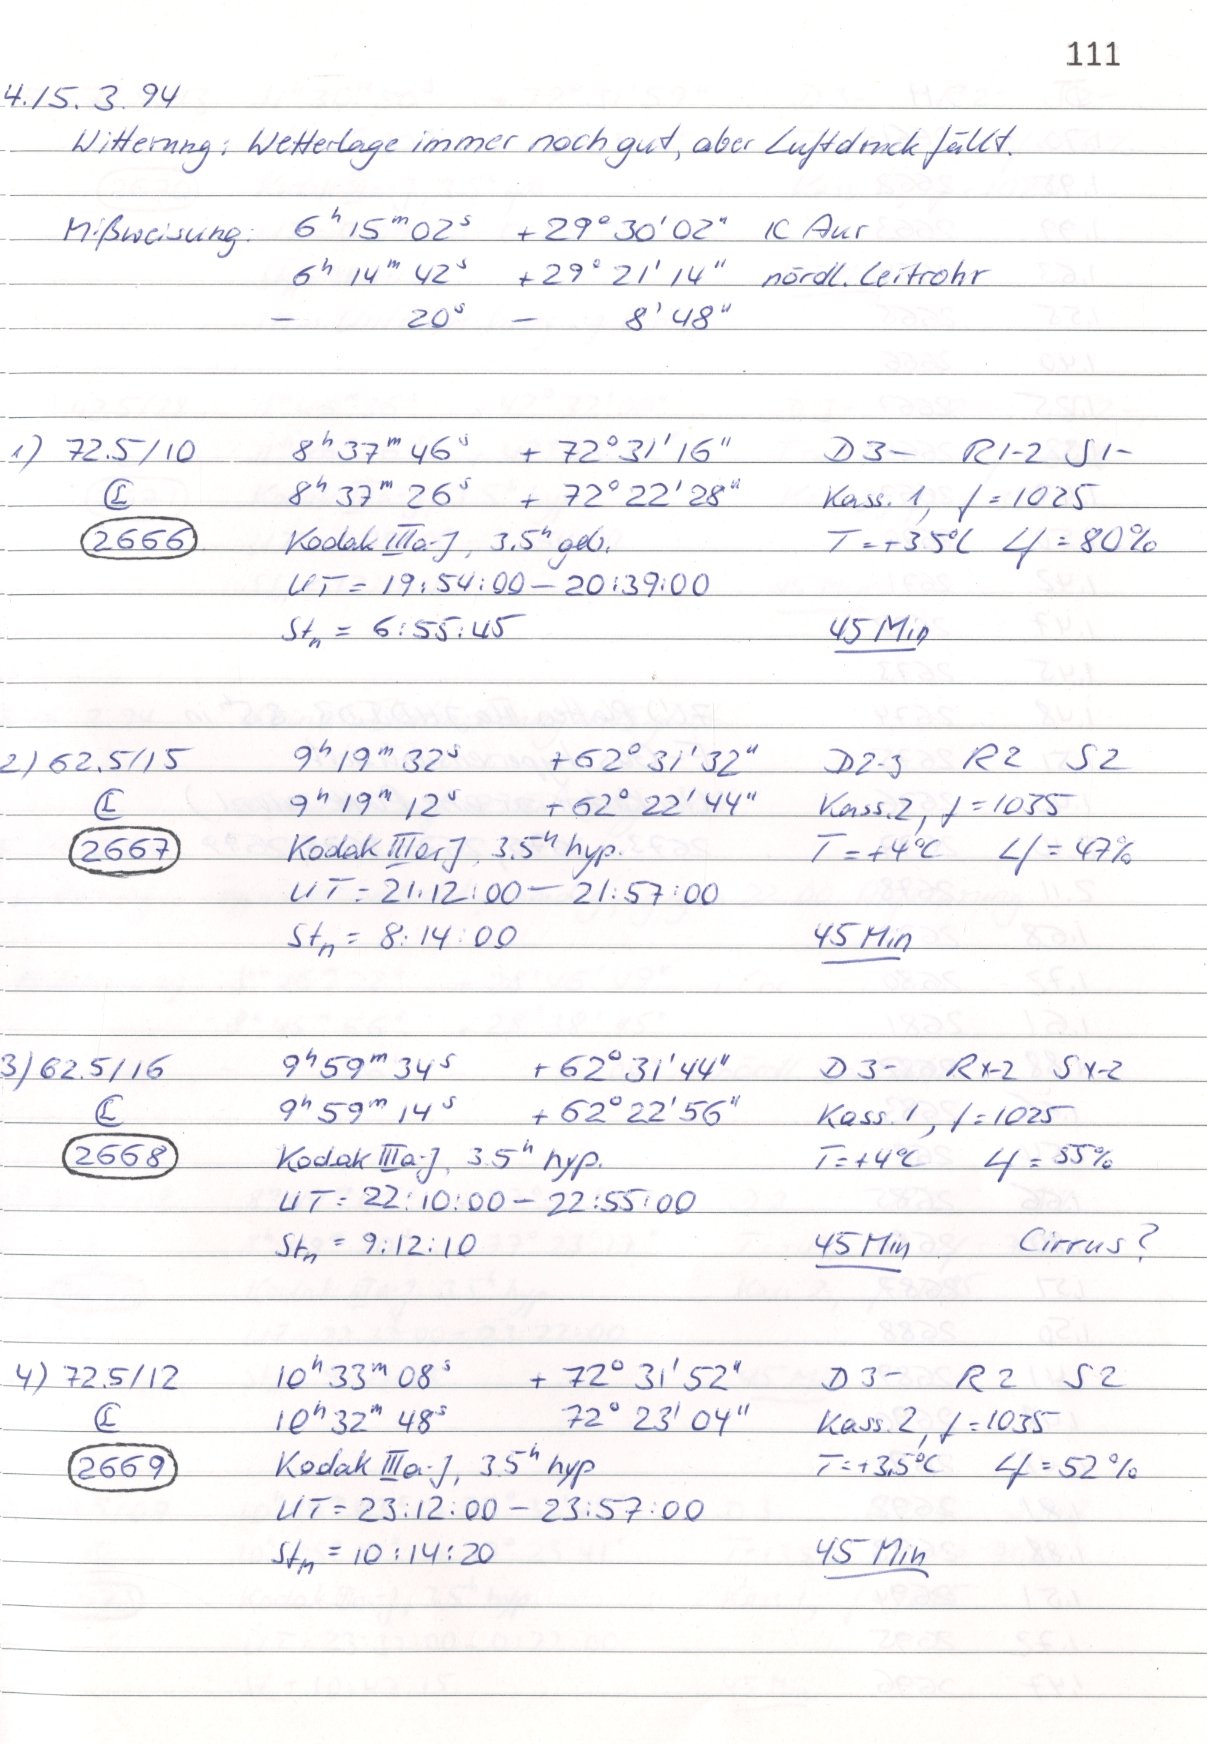 111
4./5. 3. 94
Witterung: Wetterlage immer noch gut, aber Luftdruck fällt.
Mißweisung: 6ʰ 15ᵐ 02ˢ + 29° 30' 02" IC Aur
6ʰ 14ᵐ 42ˢ + 29° 21' 14" nördl. Leitrohr
– 20ˢ – 8' 48"
1) 72.5/10 8ʰ 37ᵐ 46ˢ + 72° 31' 16" D3– R1-2 S1–
8ʰ 37ᵐ 26ˢ + 72° 22' 28" Kass. 1, f = 1025
2666 Kodak IIIa-J, 3.5ʰ geb. T = +3.5°C Lf = 80%
UT = 19:54:00 – 20:39:00
Stₙ = 6:55:45 45 Min
2) 62.5/15 9ʰ 19ᵐ 32ˢ + 62° 31' 32" D2-3 R2 S2
9ʰ 19ᵐ 12ˢ + 62° 22' 44" Kass. 2, f = 1035
2667 Kodak IIIa-J, 3.5ʰ hyp. T = +4°C Lf = 47%
UT = 21:12:00 – 21:57:00
Stₙ = 8:14:00 45 Min
3) 62.5/16 9ʰ 59ᵐ 34ˢ + 62° 31' 44" D3– Rx-2 Sx-2
9ʰ 59ᵐ 14ˢ + 62° 22' 56" Kass. 1, f = 1025
2668 Kodak IIIa-J, 3.5ʰ hyp. T = +4°C Lf = 55%
UT = 22:10:00 – 22:55:00
Stₙ = 9:12:10 45 Min Cirrus?
4) 72.5/12 10ʰ 33ᵐ 08ˢ + 72° 31' 52" D3– R2 S2
10ʰ 32ᵐ 48ˢ 72° 23' 04" Kass. 2, f = 1035
2669 Kodak IIIa-J, 3.5ʰ hyp T = +3.5°C Lf = 52%
UT = 23:12:00 – 23:57:00
Stₙ = 10:14:20 45 Min